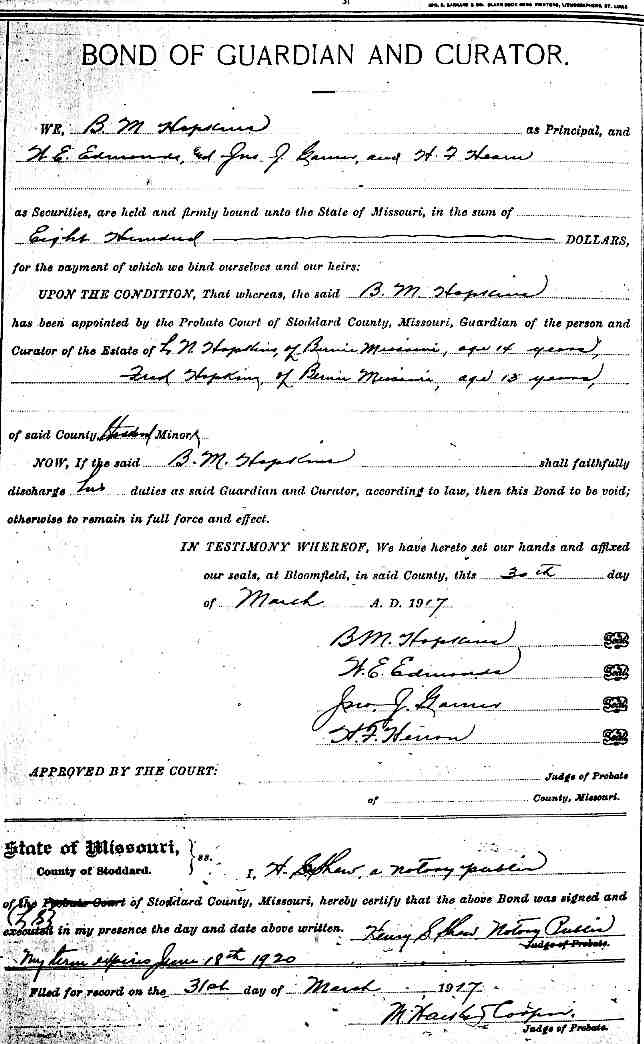 BOND OF GUARDIAN AND CURATOR.
WE, B. M Hopkins as Principal, and
W. E. Edmonds, Jno. J. Garner, and H. F Hearn
as Securities, are held and firmly bound unto the State of Missouri, in the sum of
Eight Hundred DOLLARS,
for the payment of which we bind ourselves and our heirs:
UPON THE CONDITION, That whereas, the said B. M. Hopkins
has been appointed by the Probate Court of Stoddard County, Missouri, Guardian of the person and
Curator of the Estate of L. N. Hopkins, of Bernie Missouri, age 14 years,
Fred Hopkins, of Bernie Missouri, age 15 years,
of said County, Minor
NOW, If the said B. M. Hopkins shall faithfully
discharge his duties as said Guardian and Curator, according to law, then this Bond to be void;
otherwise to remain in full force and effect.
IN TESTIMONY WHEREOF, We have hereto set our hands and affixed
our seals, at Bloomfield, in said County, this 30th day
of March A. D. 1917
B M. Hopkins Seal
W. E. Edmonds Seal
Jno. J. Garner Seal
H. F. Herron Seal
APPROVED BY THE COURT:
Judge of Probate
of County, Missouri.
State of Missouri,
County of Stoddard. } ss. I, H. S Shaw, a notary public
of the Probate Court of Stoddard County, Missouri, hereby certify that the above Bond was signed and
(L S)
executed in my presence the day and date above written. Henry S Shaw Notary Public
Judge of Probate.
My term expires June 18th 1920
Filed for record on the 31st day of March 1917
Cooper
Judge of Probate.